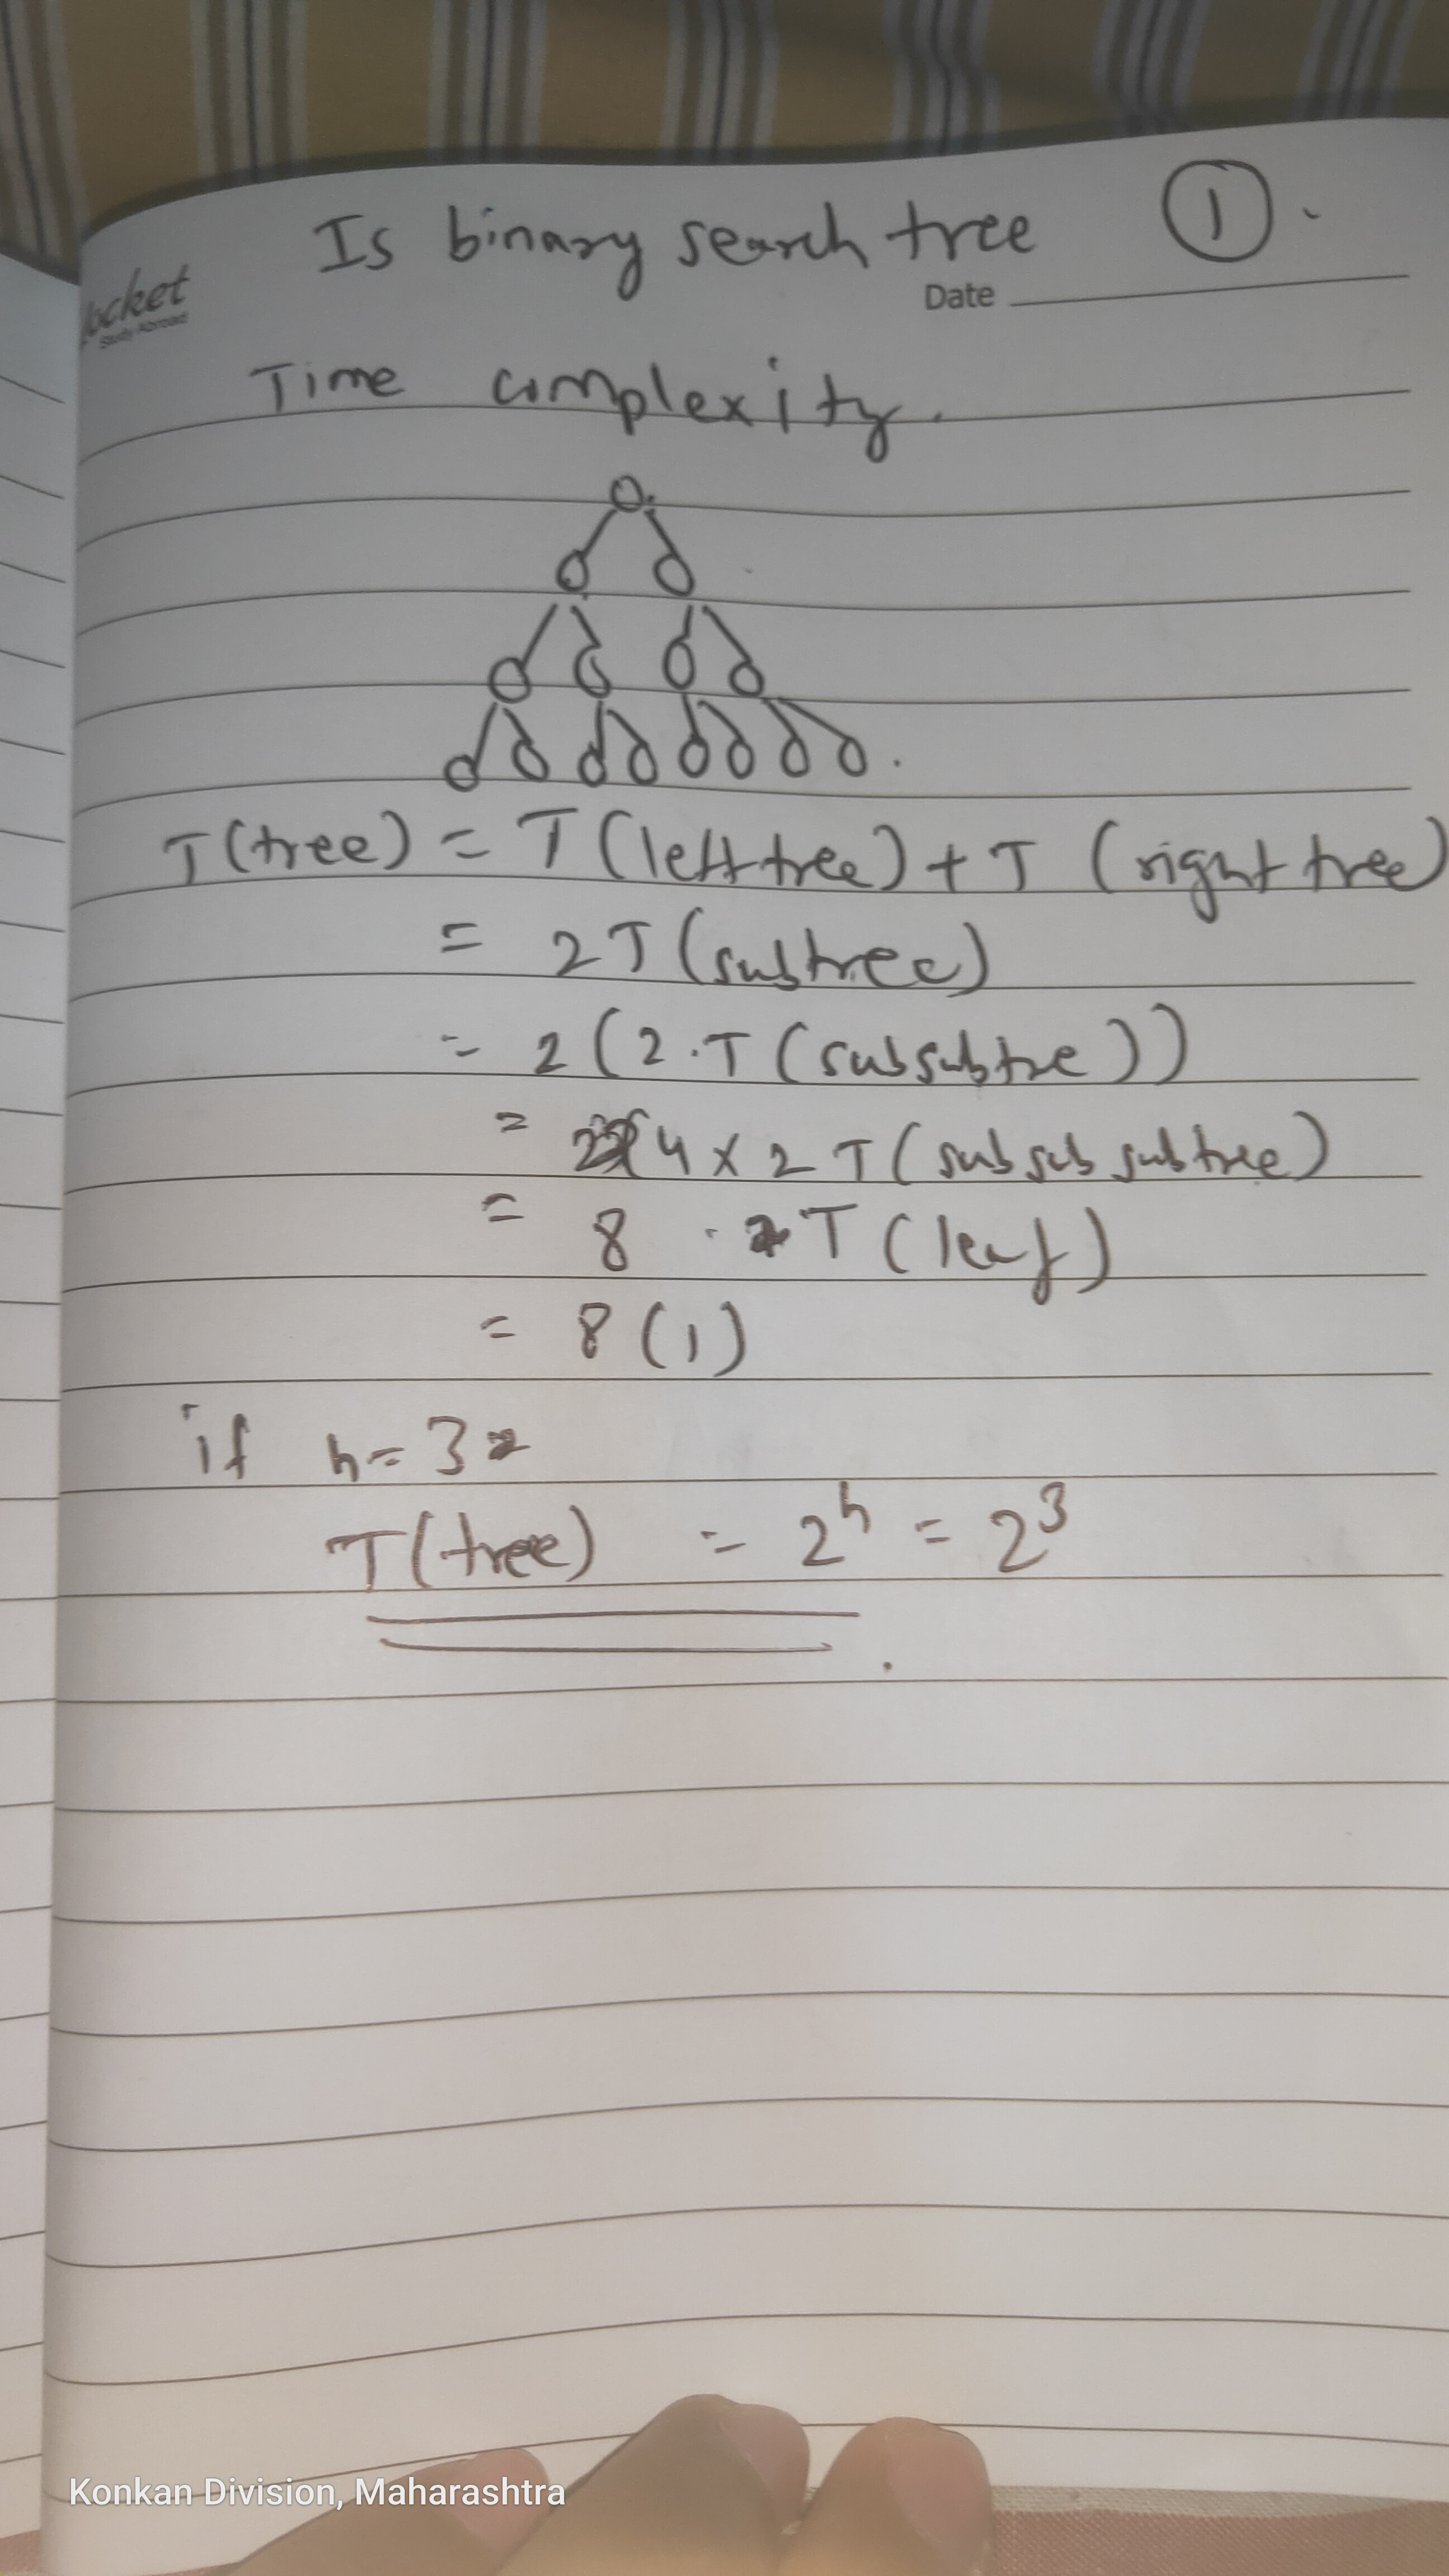 Is binary search tree ①.
ocket
Study Abroad
Date
Time complexity.
T(tree) = T(left tree) + T (right tree)
= 2T(subtree)
= 2(2.T(subsubtre))
= 4 x 2 T(sub sub subtree)
= 8 . T(leaf)
= 8(1)
if h= 3
T(tree) = 2^h = 2^3
Konkan Division, Maharashtra